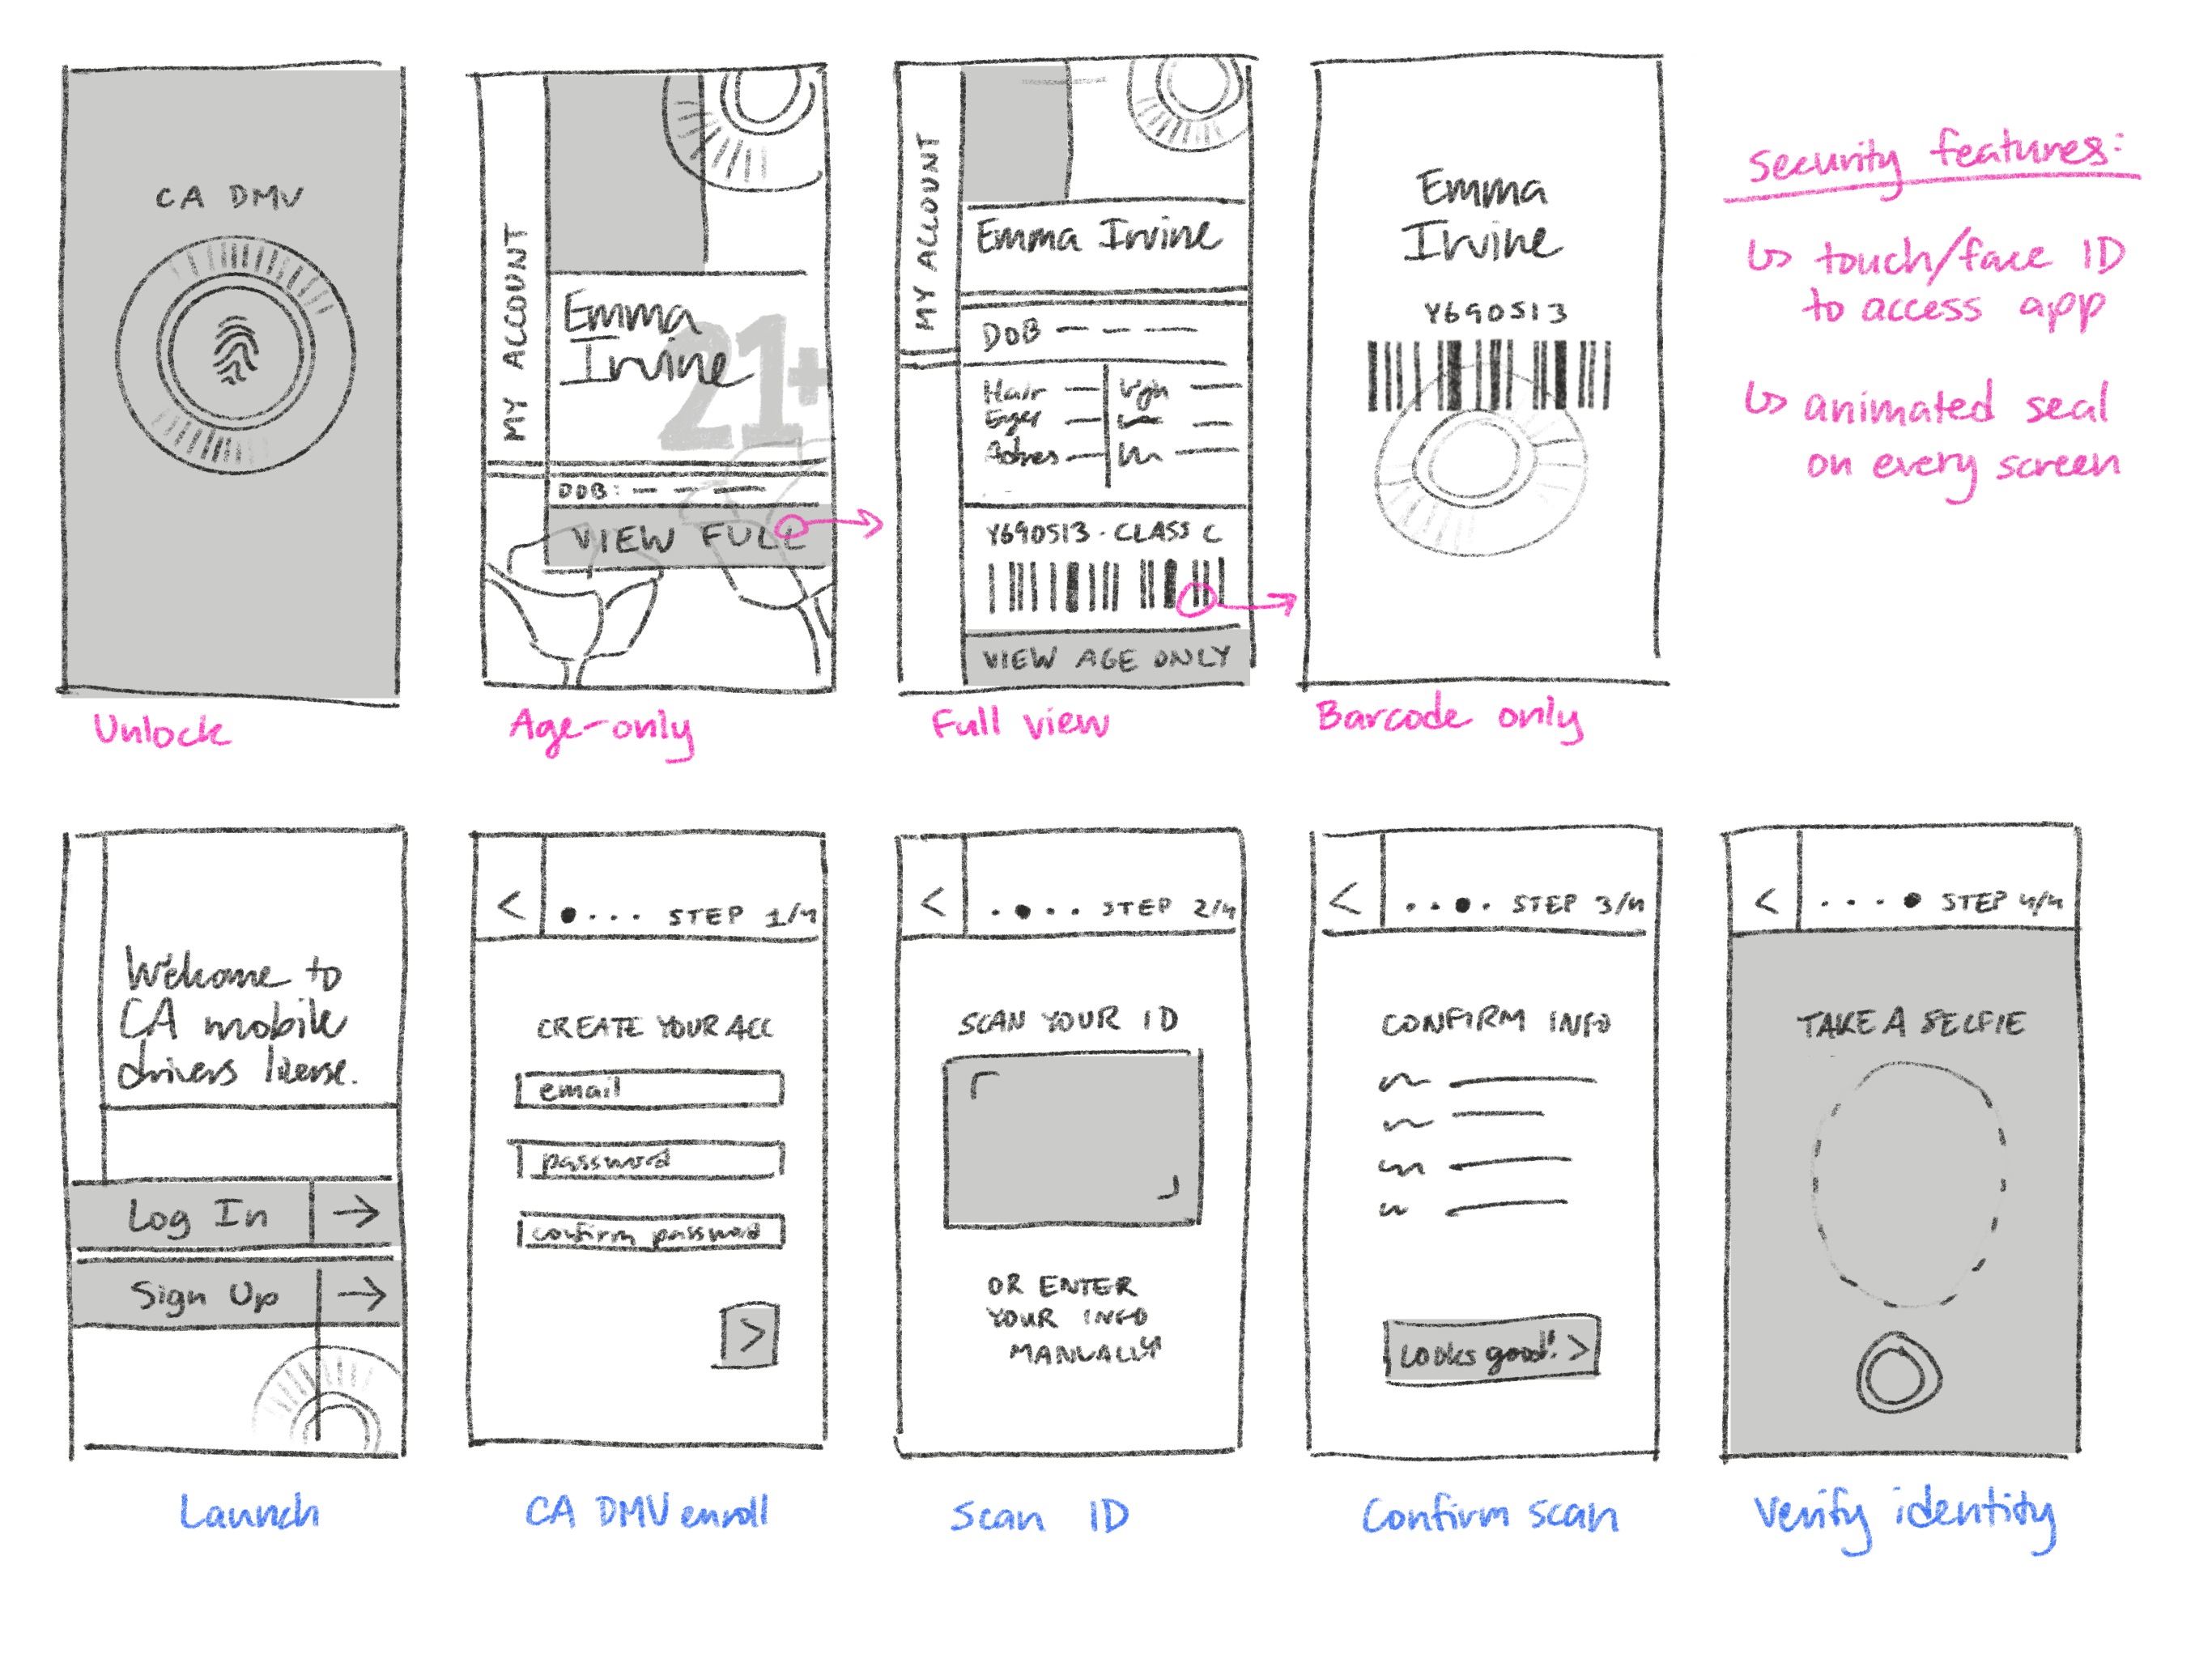 CA DMV
Unlock
MY ACCOUNT
Emma
Irvine
21+
DOB:
VIEW FULL
Age-only
MY ACCOUNT
Emma Irvine
DOB
Hair
Eyes
Adres
Y690513 · CLASS C
VIEW AGE ONLY
Full view
Emma
Irvine
Y690513
Barcode only
Security features:
↳ touch/face ID
to access app
↳ animated seal
on every screen
Welcome to
CA mobile
drivers license.
Log In →
Sign Up →
Launch
< STEP 1/4
CREATE YOUR ACC
email
password
confirm password
>
CA DMV enroll
< STEP 2/4
SCAN YOUR ID
OR ENTER
YOUR INFO
MANUALLY
Scan ID
< STEP 3/4
CONFIRM INFO
Looks good! >
Confirm scan
< STEP 4/4
TAKE A SELFIE
Verify identity